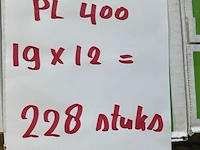 PL 400
19 x 12 =
228 stuks